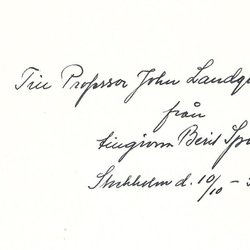 Till Professor John Landq
från
Berit Sp
Stockholm d. 10/10 - 3